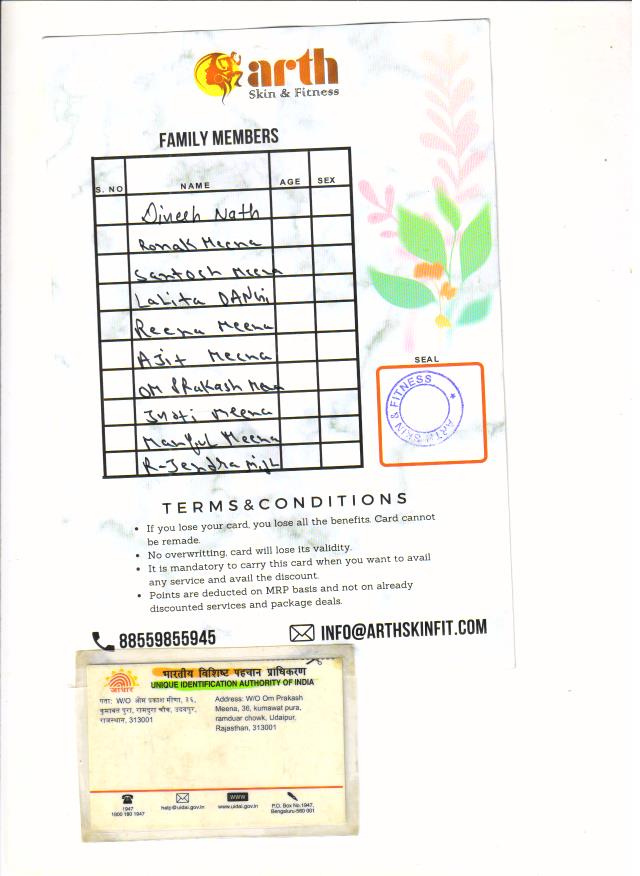 arth
Skin & Fitness
FAMILY MEMBERS
S. NO NAME AGE SEX
Dinesh Nath
Ronak Meena
Santosh Meena
Lalita DANGI
Reena Meena
Ajit Meena
OM PRAKASH Meena
Jyoti Meena
Manjul Meena
SEAL
ARTH SKIN & FITNESS
TERMS&CONDITIONS
• If you lose your card, you lose all the benefits. Card cannot
be remade.
• No overwritting, card will lose its validity.
• It is mandatory to carry this card when you want to avail
any service and avail the discount.
• Points are deducted on MRP basis and not on already
discounted services and package deals.
88559855945 INFO@ARTHSKINFIT.COM
आधार
भारतीय विशिष्ट पहचान प्राधिकरण
UNIQUE IDENTIFICATION AUTHORITY OF INDIA
पता: W/O ओम प्रकाश मीणा, ३६,
कुमावत पुरा, रामदुरा चौक, उदयपुर,
राजस्थान, 313001
Address: W/O Om Prakash
Meena, 36, kumawat pura,
ramduar chowk, Udaipur,
Rajasthan, 313001
1947
1800 180 1947
help@uidai.gov.in
WWW
www.uidai.gov.in
P.O. Box No.1947,
Bengaluru-560 001